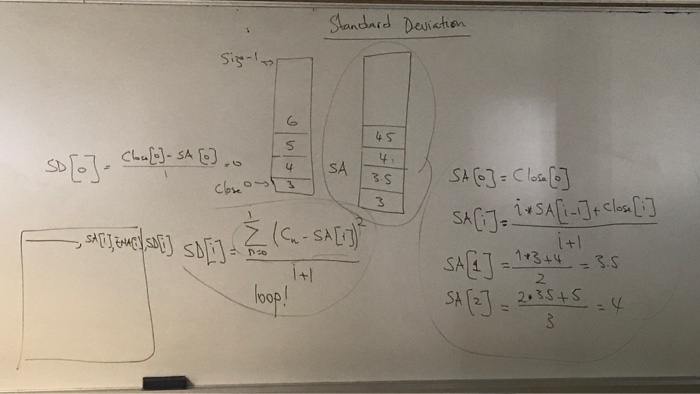 Standard Deviation
Size-1 →
6
5
4
3
Close 0 →
SA
4.5
4.
3.5
3
SD[0] = Close[0] - SA[0] / 1 = 0
SA[0] = Close[0]
SA[i] = i * SA[i-1] + Close[i] / i+1
SA[1] = 1*3+4 / 2 = 3.5
SA[2] = 2*3.5+5 / 3 = 4
, SA[i], EMA[i], SD[i]
SD[i] = i Σ n=0 (Cn - SA[i])² / i+1
loop!